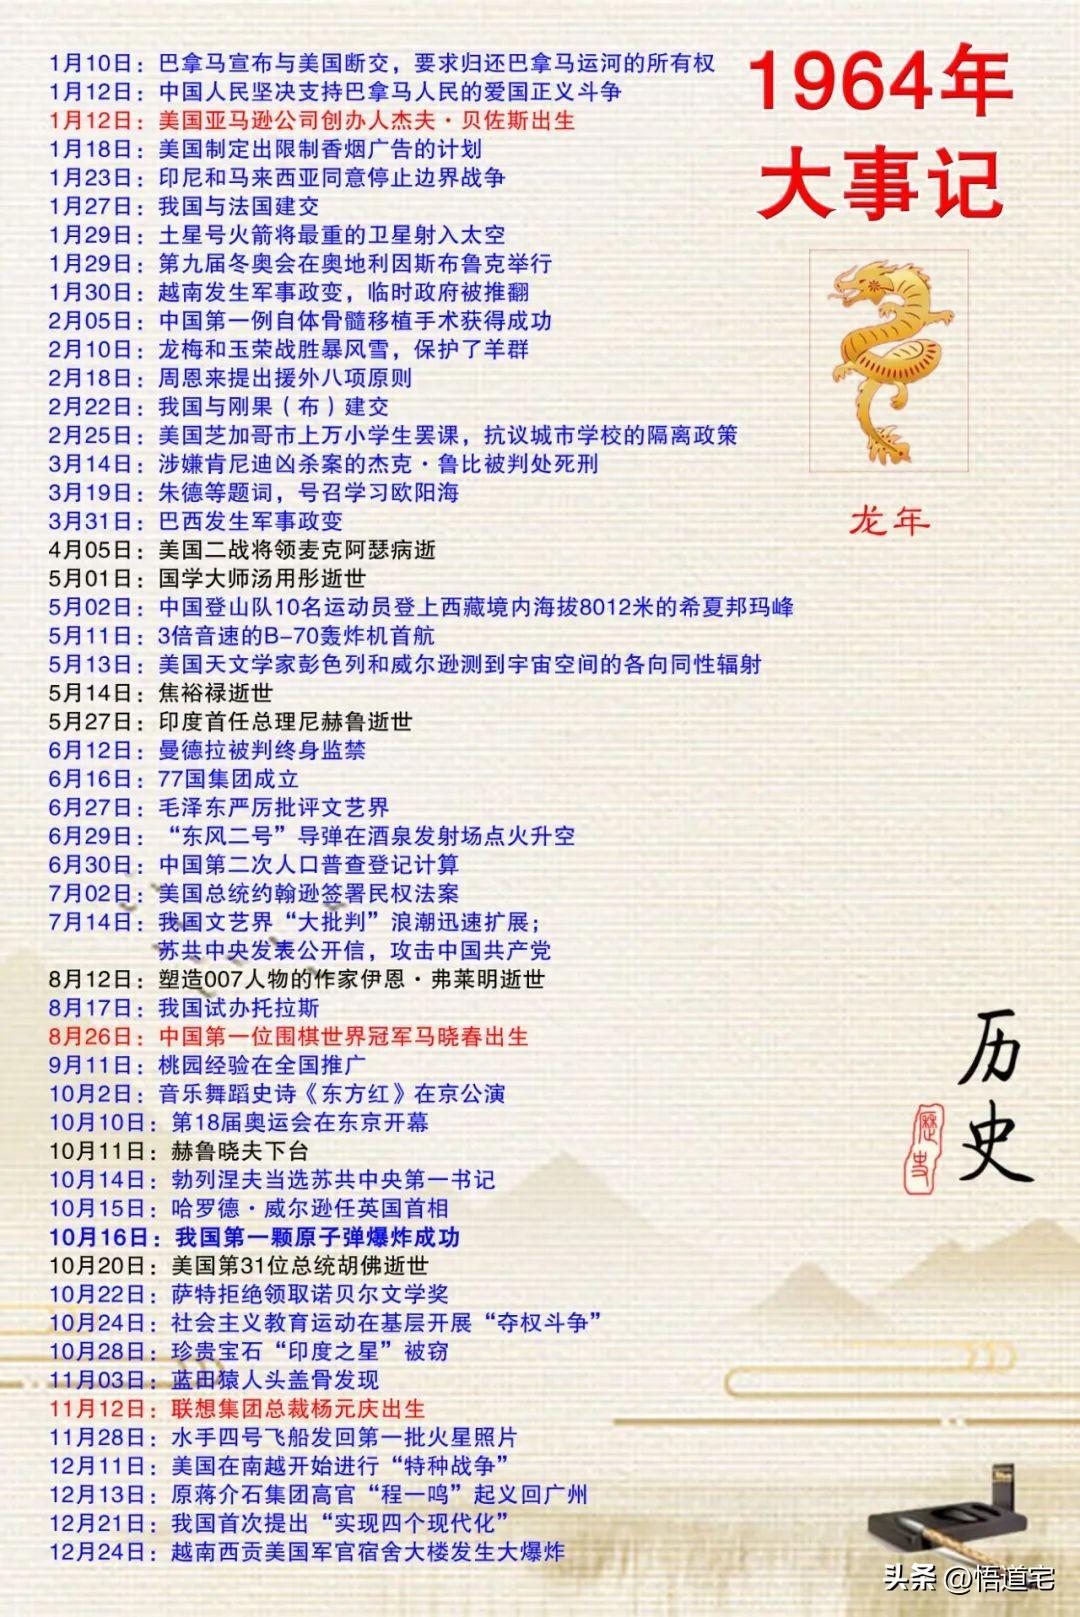 1964年
大事记
龙年
1月10日：巴拿马宣布与美国断交，要求归还巴拿马运河的所有权
1月12日：中国人民坚决支持巴拿马人民的爱国正义斗争
1月12日：美国亚马逊公司创办人杰夫·贝佐斯出生
1月18日：美国制定出限制香烟广告的计划
1月23日：印尼和马来西亚同意停止边界战争
1月27日：我国与法国建交
1月29日：土星号火箭将最重的卫星射入太空
1月29日：第九届冬奥会在奥地利因斯布鲁克举行
1月30日：越南发生军事政变，临时政府被推翻
2月05日：中国第一例自体骨髓移植手术获得成功
2月10日：龙梅和玉荣战胜暴风雪，保护了羊群
2月18日：周恩来提出援外八项原则
2月22日：我国与刚果（布）建交
2月25日：美国芝加哥市上万小学生罢课，抗议城市学校的隔离政策
3月14日：涉嫌肯尼迪凶杀案的杰克·鲁比被判处死刑
3月19日：朱德等题词，号召学习欧阳海
3月31日：巴西发生军事政变
4月05日：美国二战将领麦克阿瑟病逝
5月01日：国学大师汤用彤逝世
5月02日：中国登山队10名运动员登上西藏境内海拔8012米的希夏邦玛峰
5月11日：3倍音速的B-70轰炸机首航
5月13日：美国天文学家彭色列和威尔逊测到宇宙空间的各向同性辐射
5月14日：焦裕禄逝世
5月27日：印度首任总理尼赫鲁逝世
6月12日：曼德拉被判终身监禁
6月16日：77国集团成立
6月27日：毛泽东严厉批评文艺界
6月29日：“东风二号”导弹在酒泉发射场点火升空
6月30日：中国第二次人口普查登记计算
7月02日：美国总统约翰逊签署民权法案
7月14日：我国文艺界“大批判”浪潮迅速扩展；
苏共中央发表公开信，攻击中国共产党
8月12日：塑造007人物的作家伊恩·弗莱明逝世
8月17日：我国试办托拉斯
8月26日：中国第一位围棋世界冠军马晓春出生
9月11日：桃园经验在全国推广
10月2日：音乐舞蹈史诗《东方红》在京公演
10月10日：第18届奥运会在东京开幕
10月11日：赫鲁晓夫下台
10月14日：勃列涅夫当选苏共中央第一书记
10月15日：哈罗德·威尔逊任英国首相
10月16日：我国第一颗原子弹爆炸成功
10月20日：美国第31位总统胡佛逝世
10月22日：萨特拒绝领取诺贝尔文学奖
10月24日：社会主义教育运动在基层开展“夺权斗争”
10月28日：珍贵宝石“印度之星”被窃
11月03日：蓝田猿人头盖骨发现
11月12日：联想集团总裁杨元庆出生
11月28日：水手四号飞船发回第一批火星照片
12月11日：美国在南越开始进行“特种战争”
12月13日：原蒋介石集团高官“程一鸣”起义回广州
12月21日：我国首次提出“实现四个现代化”
12月24日：越南西贡美国军官宿舍大楼发生大爆炸
历史
歷史
头条 @悟道宅